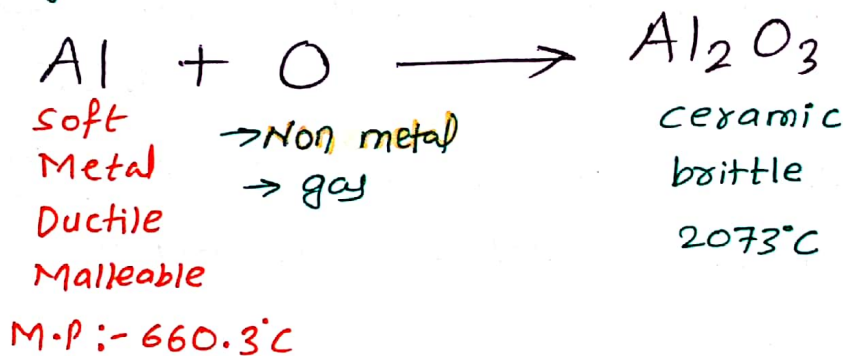 Al + O → Al₂O₃
Soft
Metal
Ductile
Malleable
M.P :- 660.3°C
→ Non metal
→ gas
ceramic
brittle
2073°C